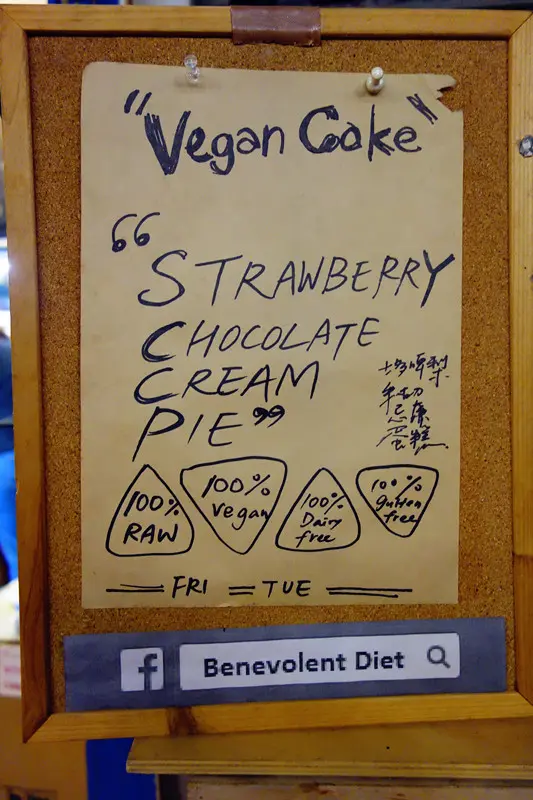 "Vegan Cake"
“STRAWBERRY
CHOCOLATE
CREAM
PIE”
蛋糕
100%
RAW
100%
vegan
100%
Dairy
free
100%
gutten
free
FRI TUE
f
Benevolent Diet